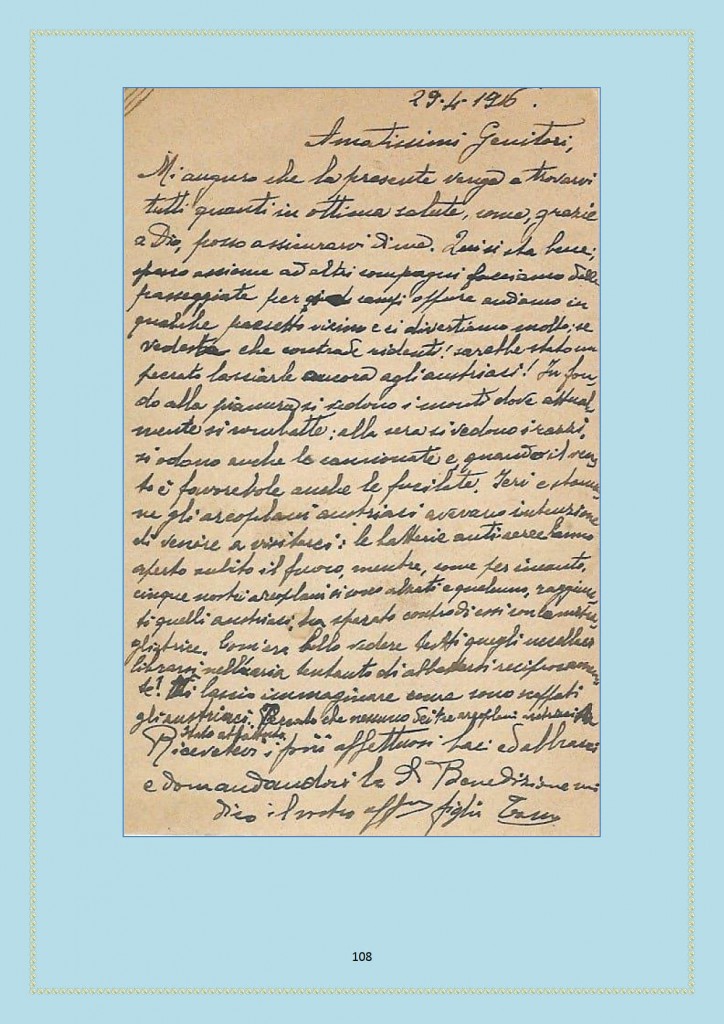 29-4-1916.
Amatissimi Genitori,
Mi auguro che la presente venga a trovarvi
tutti quanti in ottima salute, come, grazie
a Dio, posso assicurarvi di me. Qui si sta bene;
spesso assieme ad altri compagni facciamo delle
passeggiate per i campi oppure andiamo in
qualche paesetto vicino e ci divertiamo molto; se
vedeste che contrade ridenti! sarebbe stato un
peccato lasciarle ancora agli austriaci! In fon-
do alla pianura si vedono i monti dove attual-
mente si combatte; alla sera si vedono i razzi,
si odono anche le cannonate e, quando il ven-
to è favorevole anche le fucilate. Ieri e stama-
ne gli areoplani austriaci avevano intenzione
di venire a visitarci; le batterie antiaeree hanno
aperto subito il fuoco, mentre, come per incanto,
cinque nostri areoplani si sono alzati e qualcuno, raggiun-
ti quelli austriaci, ha sparato contro di essi con la mitra-
gliatrice. Com'era bello vedere tutti quegli uccellacci
librarsi nell'aria tentanto di abbattersi reciprocamen-
te! Vi lascio immaginare come sono scappati
gli austriaci. Peccato che nessuno dei tre areoplani nemici sia
stato abbattuto.
Ricevetevi i più affettuosi baci ed abbracci
e domandandovi la S. Benedizione mi
dico il vostro aff.mo figlio
108